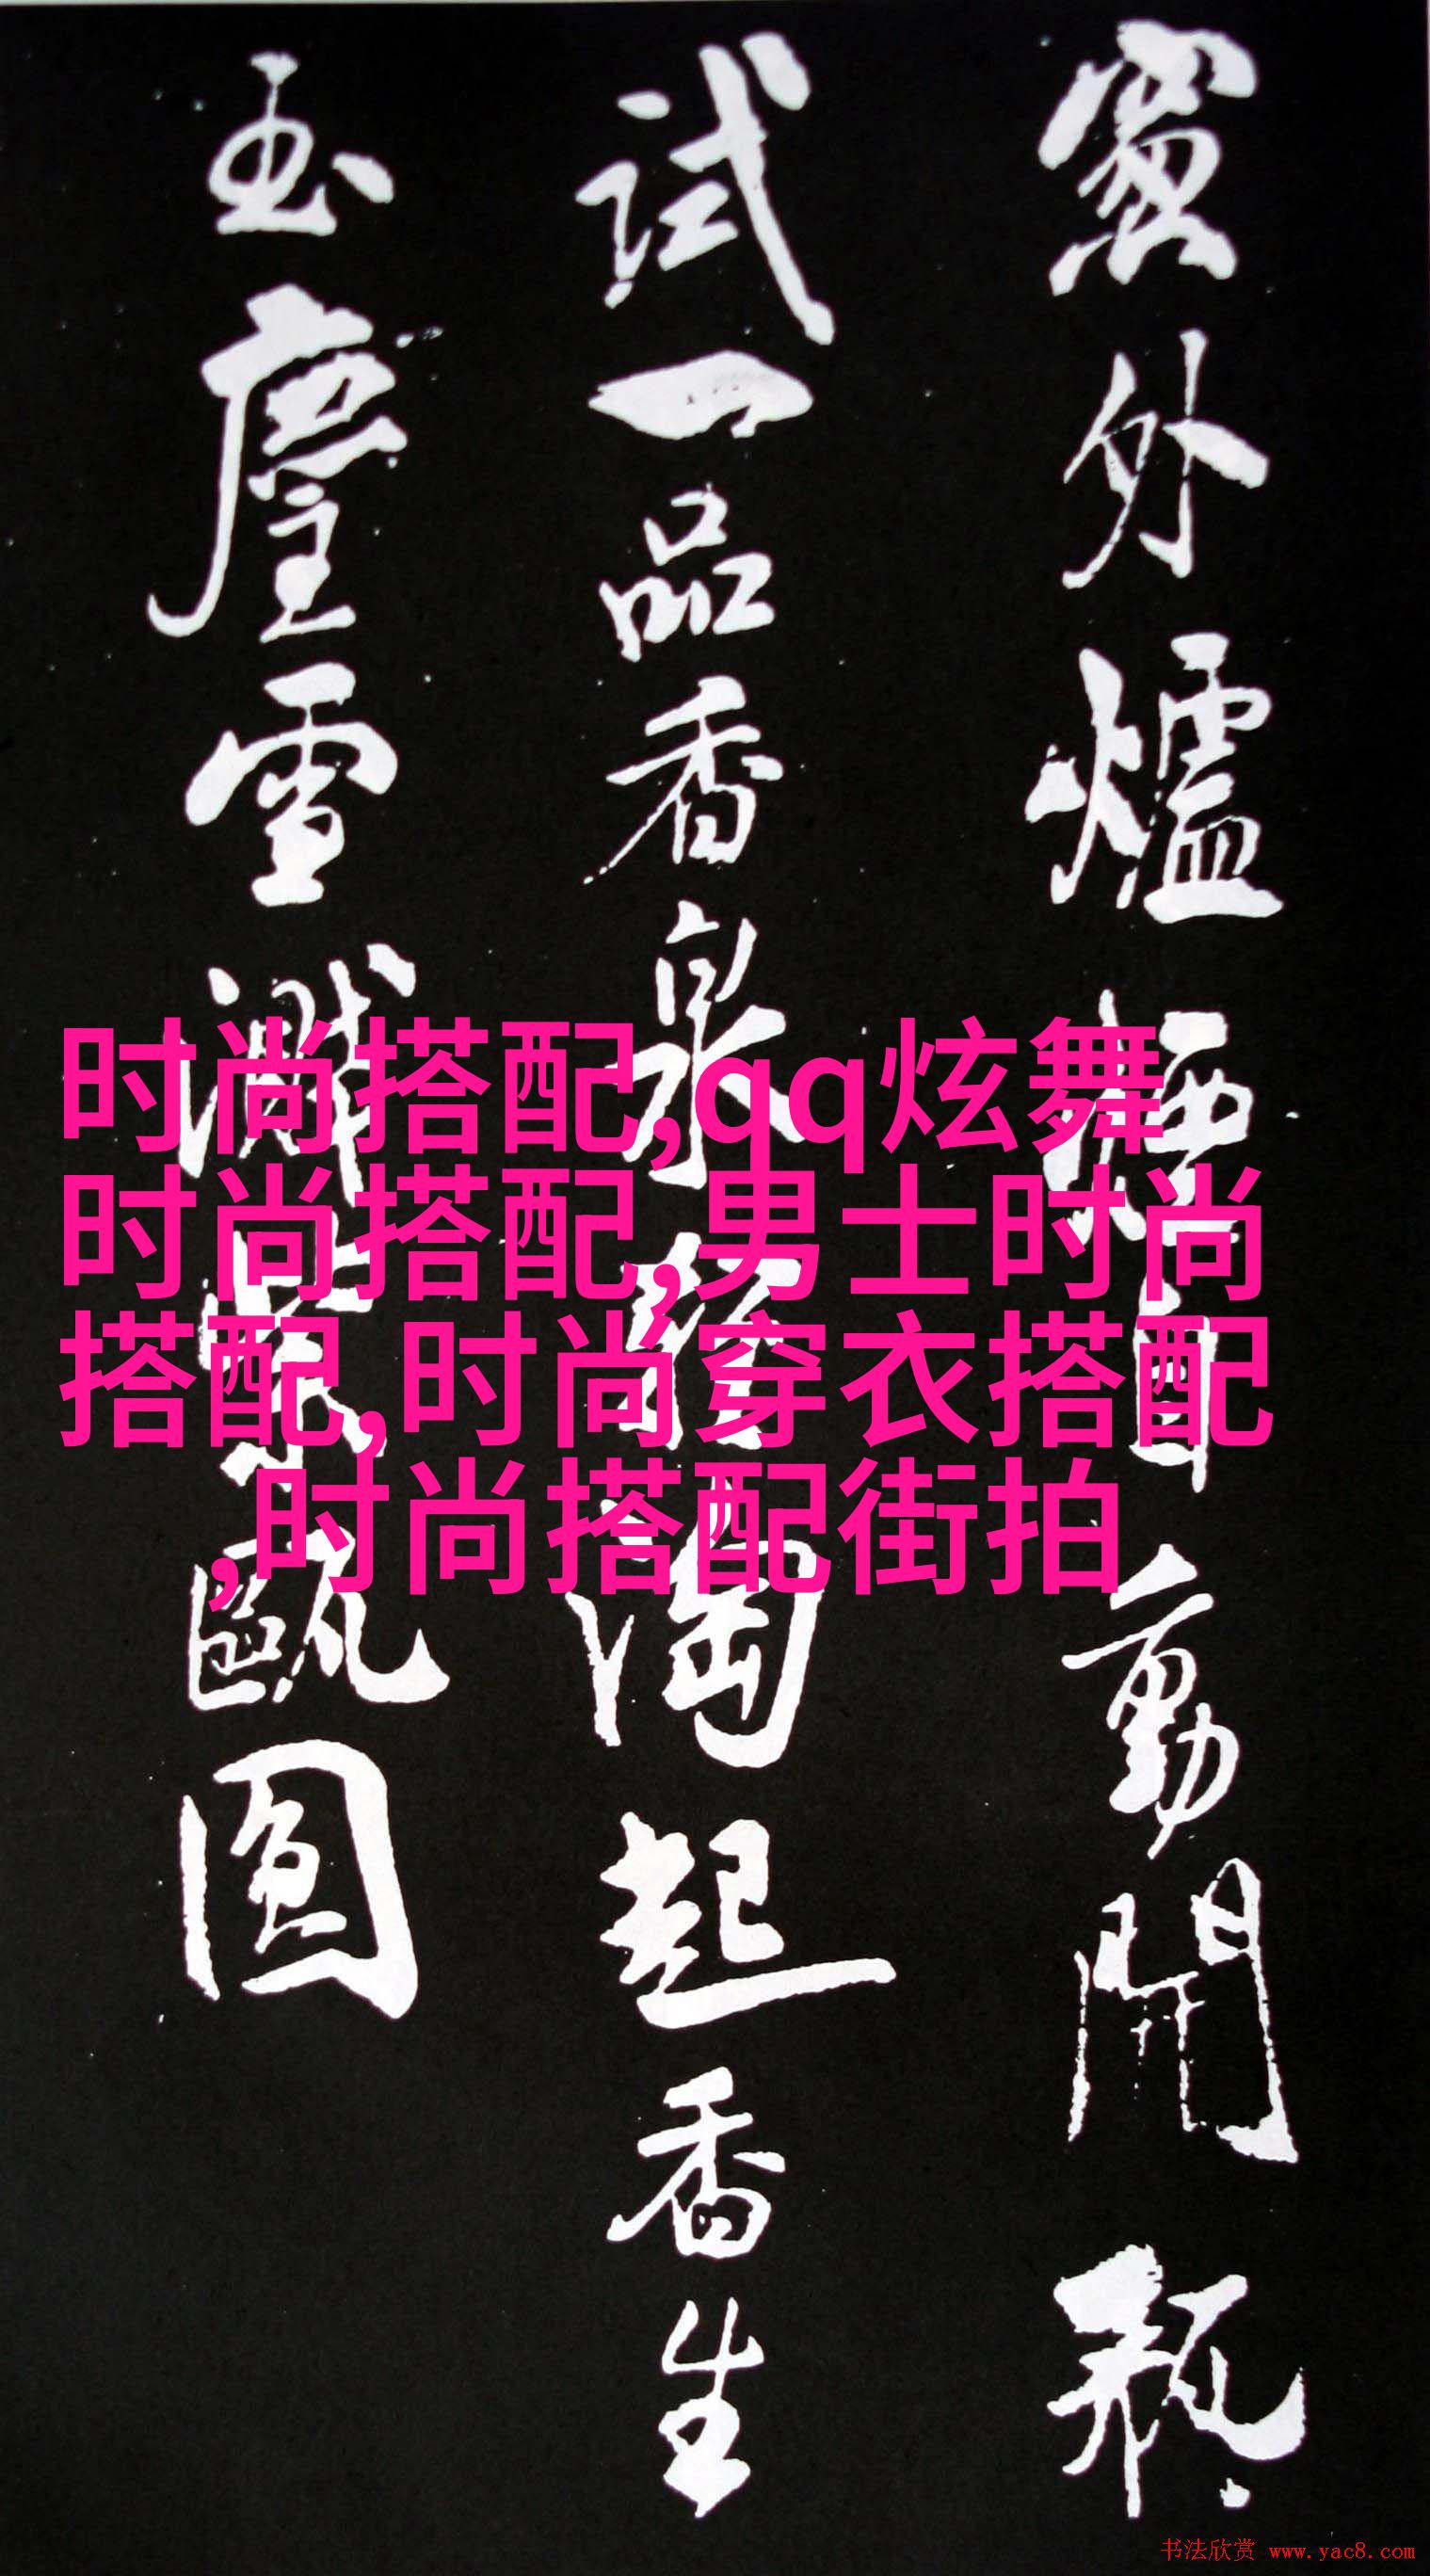 窗外爐煙自動開瓶
試一品香泉輕淘起香生
玉塵雪濺紫甌圓
时尚搭配,qq炫舞
时尚搭配,男士时尚
搭配,时尚穿衣搭配
,时尚搭配街拍
书法欣赏 www.yac8.com